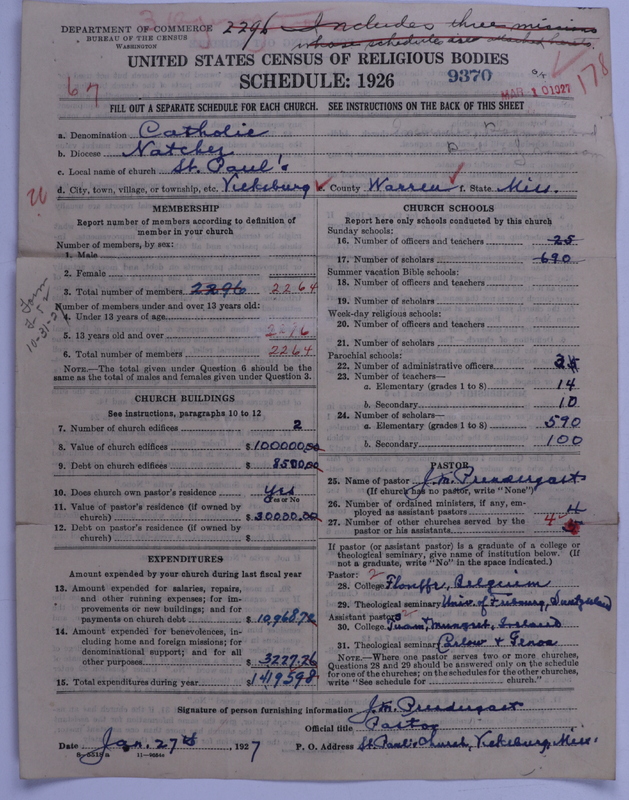 DEPARTMENT OF COMMERCE
BUREAU OF THE CENSUS
WASHINGTON
2296 Includes three missions
whose schedules are attached hereto.
UNITED STATES CENSUS OF RELIGIOUS BODIES
SCHEDULE: 1926
9370
67
178
FILL OUT A SEPARATE SCHEDULE FOR EACH CHURCH. SEE INSTRUCTIONS ON THE BACK OF THIS SHEET
a. Denomination Catholic
b. Diocese Natchez
c. Local name of church St. Paul's
d. City, town, village, or township, etc. Vicksburg e. County Warren f. State Miss.
MEMBERSHIP
Report number of members according to definition of
member in your church
Number of members, by sex:
1. Male
2. Female
3. Total number of members 2296 2264
Number of members under and over 13 years old:
4. Under 13 years of age
5. 13 years old and over
6. Total number of members 2264
NOTE.—The total given under Question 6 should be
same as the total of males and females given under Question 3.
CHURCH BUILDINGS
See instructions, paragraphs 10 to 12
7. Number of church edifices 2
8. Value of church edifices $ 100000,00
9. Debt on church edifices $ 8500,00
10. Does church own pastor's residence Yes
Yes or No
11. Value of pastor's residence (if owned by
church) $ 30000.00
12. Debt on pastor's residence (if owned by
church) $
EXPENDITURES
Amount expended by your church during last fiscal year
13. Amount expended for salaries, repairs,
and other running expenses; for im-
provements or new buildings; and for
payments on church debt $ 10,968.72
14. Amount expended for benevolences, in-
cluding home and foreign missions; for
denominational support; and for all
other purposes $ 3227.26
15. Total expenditures during year $ 1419598
CHURCH SCHOOLS
Report here only schools conducted by this church
Sunday schools:
16. Number of officers and teachers 25
17. Number of scholars 690
Summer vacation Bible schools:
18. Number of officers and teachers
19. Number of scholars
Week-day religious schools:
20. Number of officers and teachers
21. Number of scholars
Parochial schools:
22. Number of administrative officers
23. Number of teachers—
a. Elementary (grades 1 to 8) 14
b. Secondary 10
24. Number of scholars—
a. Elementary (grades 1 to 8) 590
b. Secondary 100
PASTOR
25. Name of pastor J. M. Prendergast
(If church has no pastor, write "None")
26. Number of ordained ministers, if any, em-
ployed as assistant pastors 4
27. Number of other churches served by the
pastor or his assistants 4
If pastor (or assistant pastor) is a graduate of a college or
theological seminary, give name of institution below. (If
not a graduate, write "No" in the space indicated.)
Pastor: 2
28. College Floreffe, Belgium
29. Theological seminary Univ. of Fribourg, Switzerland
Assistant pastor:
30. College Tuam, Mungret, Ireland
31. Theological seminary Carlow & Genoa
NOTE.—Where one pastor serves two or more churches,
Questions 28 and 29 should be answered only on the schedule
for one of the churches; on the schedules for the other churches,
write "See schedule for church."
Signature of person furnishing information J. M. Prendergast
Official title Pastor
Date Jan. 27th, 1927 P. O. Address St. Paul's Church, Vicksburg, Miss.